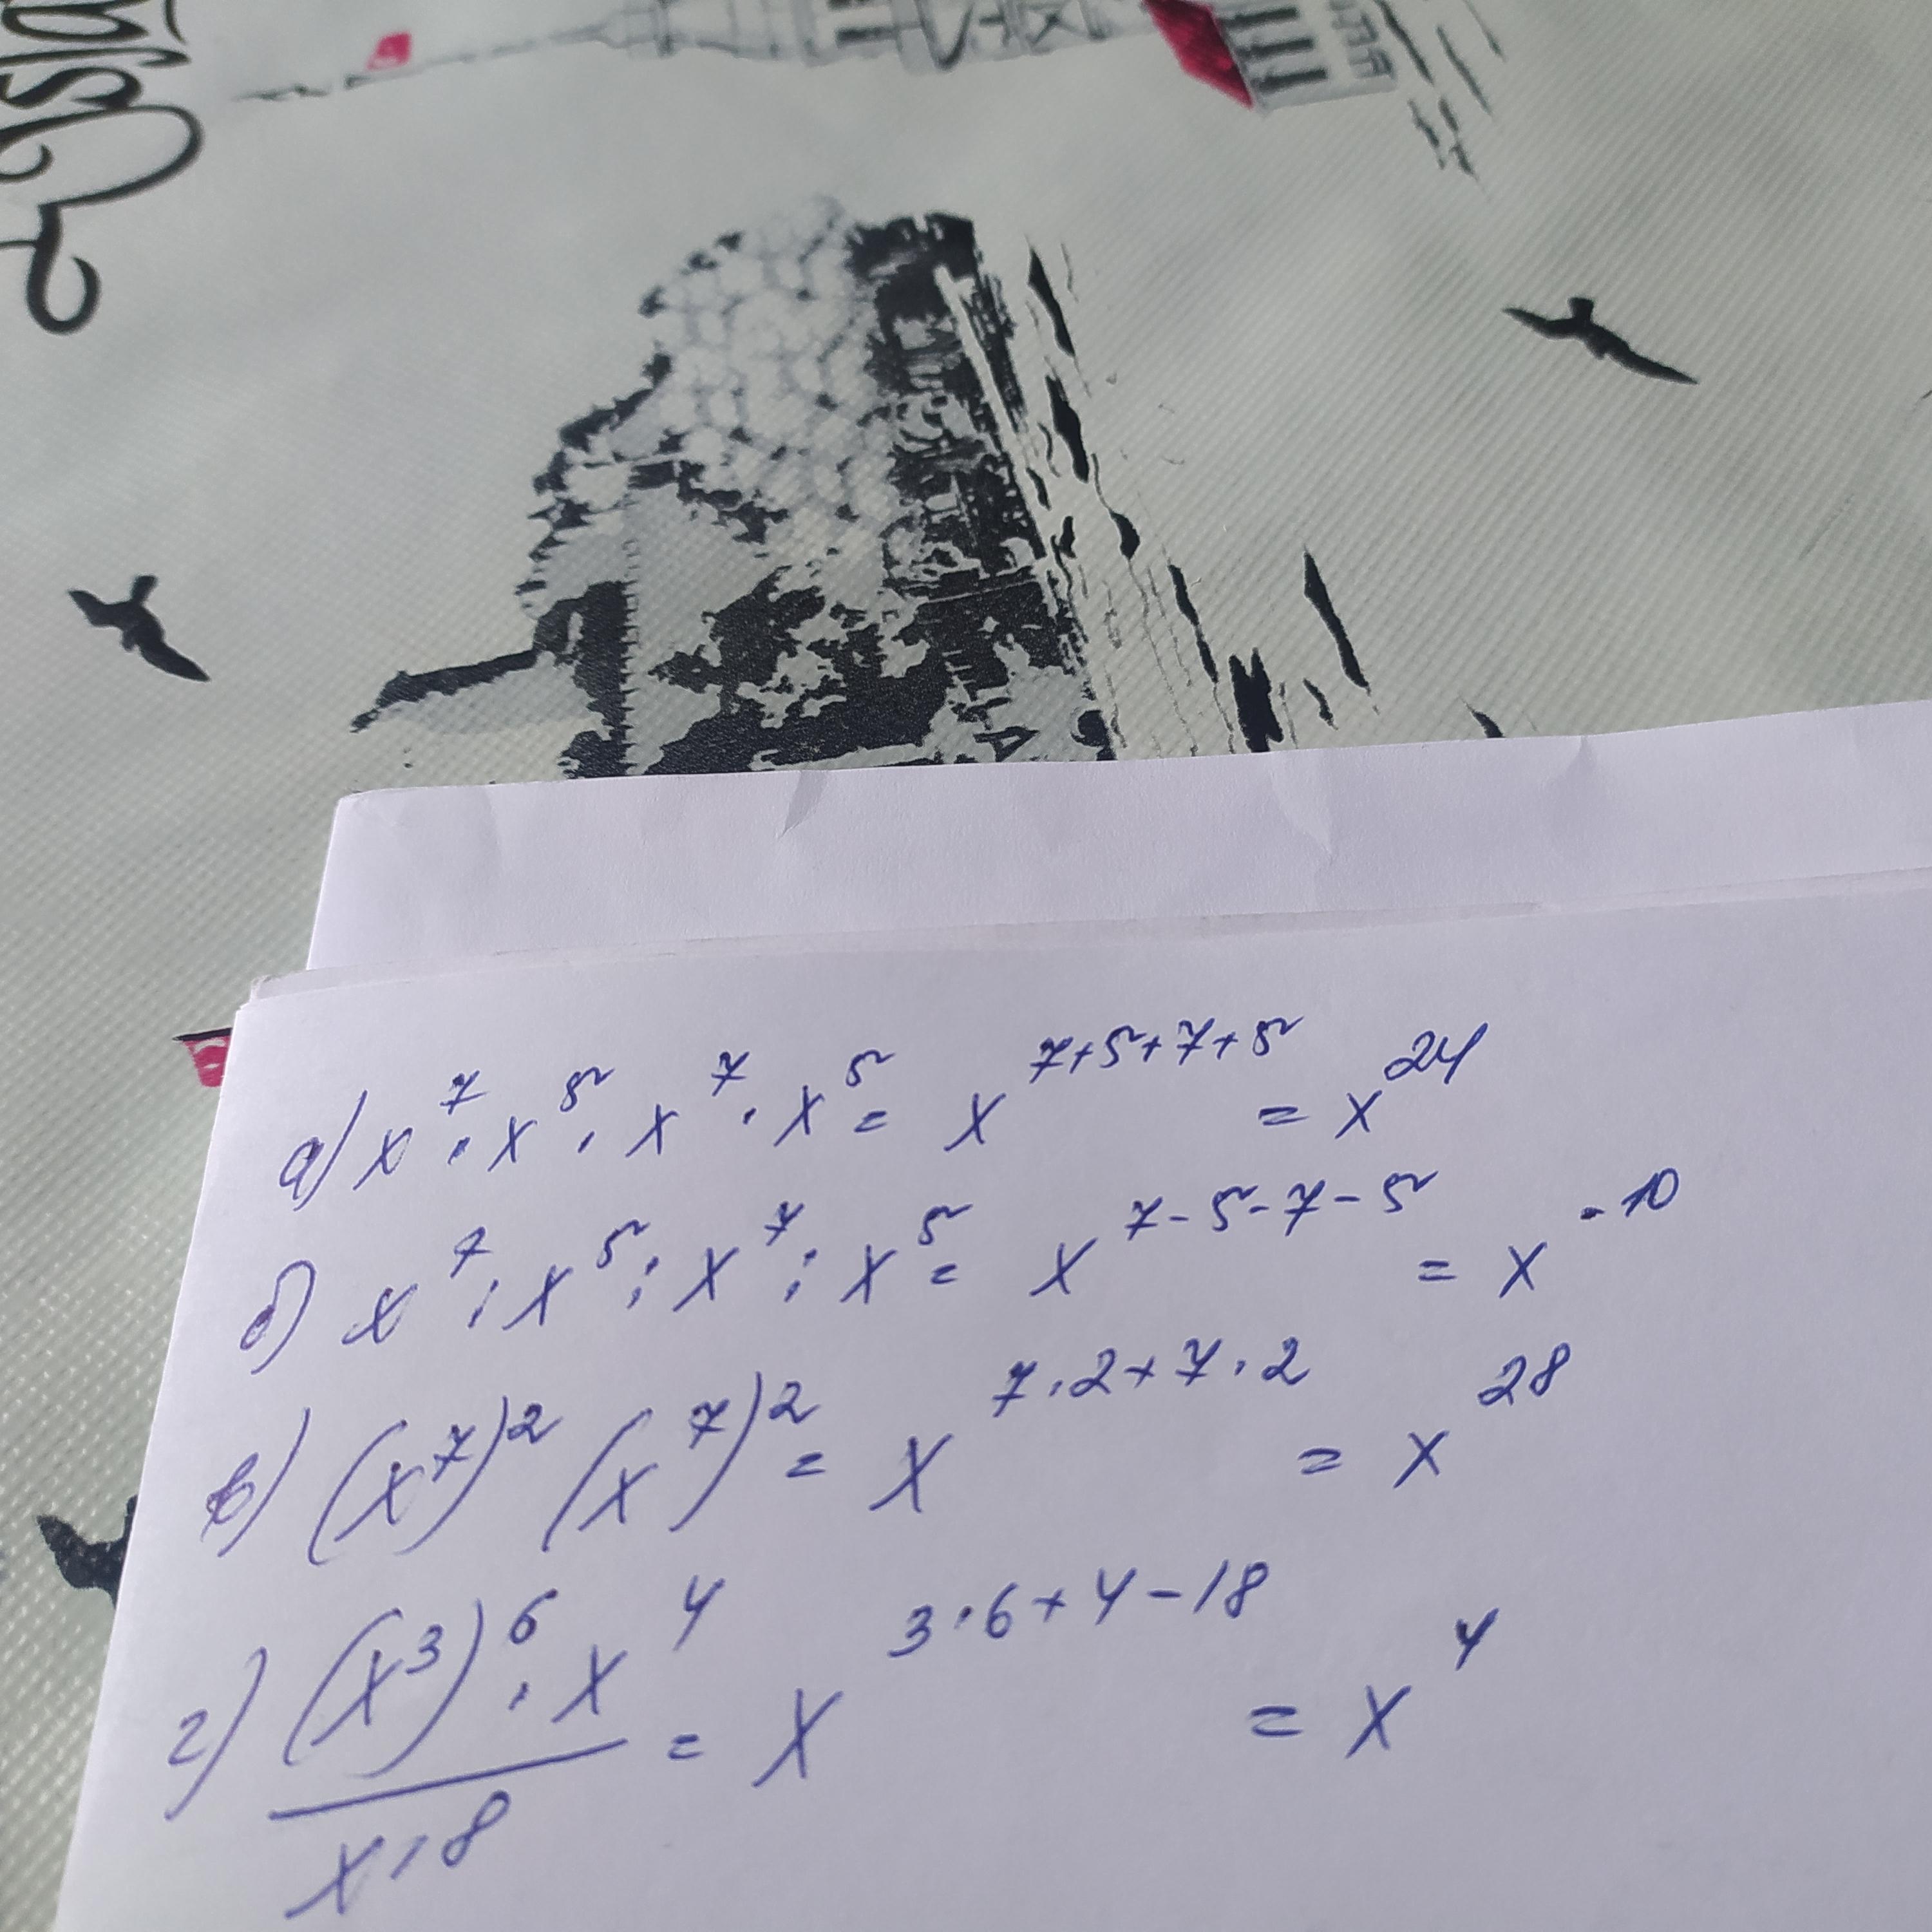 а) x⁷ · x⁵ · x⁷ · x⁵ = x⁷⁺⁵⁺⁷⁺⁵ = x²⁴
б) x⁷ : x⁵ : x⁷ : x⁵ = x⁷⁻⁵⁻⁷⁻⁵ = x⁻¹⁰
в) (x⁷)² (x⁷)² = x⁷·²⁺⁷·² = x²⁸
г) (x³)⁶ · x⁴ / x18 = x³·⁶⁺⁴⁻¹⁸ = x⁴